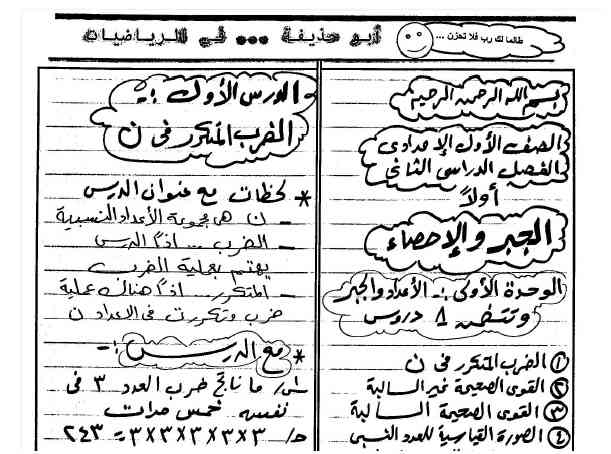 أبو حذيفة ... في الرياضيات
طالما لك رب فلا تحزن ...
بسم الله الرحمن الرحيم
الصف الأول الإعدادى
الفصل الدراسى الثانى
أولاً
الجبر والإحصاء
الوحدة الأولى :- الأعداد والجبر
وتتضمن ٨ دروس
١ الضرب المتكرر فى ن
٢ القوى الصحيحة غير السالبة
٣ القوى الصحيحة السالبة
٤ الصورة القياسية للعدد النسبى
- الدرس الأول :-
الضرب المتكرر فى ن
* لحظات مع عنوان الدرس
- ن هى مجموعة الأعداد النسبية
- الضرب ... اذاً الدرس
يهتم بعملية الضرب
- المتكرر ... اذاً هناك عملية
ضرب وتكررت فى الاعداد ن
* مع الدرس :-
س/ ما ناتج ضرب العدد ٣ فى
نفسه خمس مرات
حـ/ ٣×٣×٣×٣×٣ = ٢٤٣